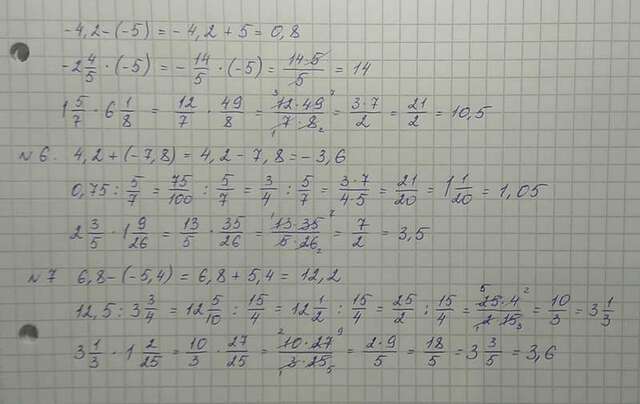 -4,2-(-5) = -4,2+5 = 0,8
-2 4/5 · (-5) = -14/5 · (-5) = 14·5/5 = 14
1 5/7 · 6 1/8 = 12/7 · 49/8 = 12·49/7·8 = 3·7/2 = 21/2 = 10,5
№6. 4,2+(-7,8) = 4,2-7,8 = -3,6
0,75 : 5/7 = 75/100 : 5/7 = 3/4 : 5/7 = 3·7/4·5 = 21/20 = 1 1/20 = 1,05
2 3/5 · 1 9/26 = 13/5 · 35/26 = 13·35/5·26 = 7/2 = 3,5
№7 6,8-(-5,4) = 6,8+5,4 = 12,2
12,5 : 3 3/4 = 12 5/10 : 15/4 = 12 1/2 : 15/4 = 25/2 : 15/4 = 25·4/2·15 = 10/3 = 3 1/3
3 1/3 · 1 2/25 = 10/3 · 27/25 = 10·27/3·25 = 2·9/5 = 18/5 = 3 3/5 = 3,6